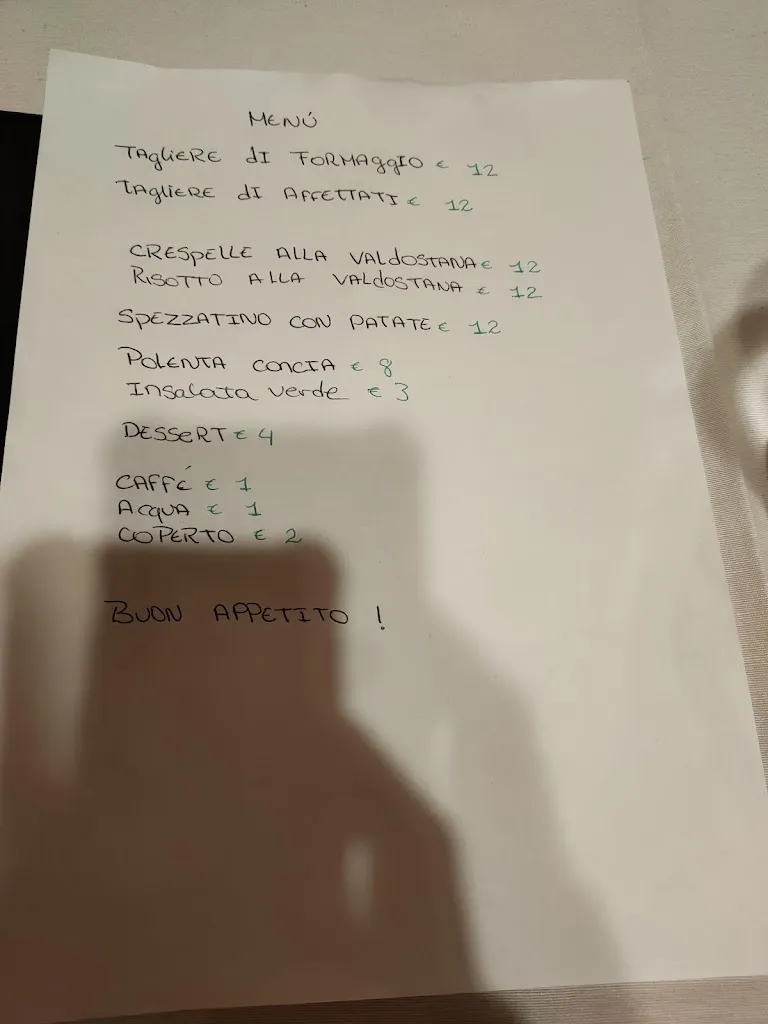 MENÚ
TAgliERE dI FORMAggIO € 12
TAgliERE dI AFFETTATI € 12
CRESPELLE ALLA VALdOSTANA € 12
RISOTTO ALLA VALdOSTANA € 12
SPEZZATINO CON PATATE € 12
POLENTA CONCIA € 8
Insalata verde € 3
DESSERT € 4
CAFFÉ € 1
ACQUA € 1
COPERTO € 2
BUON APPETITO !